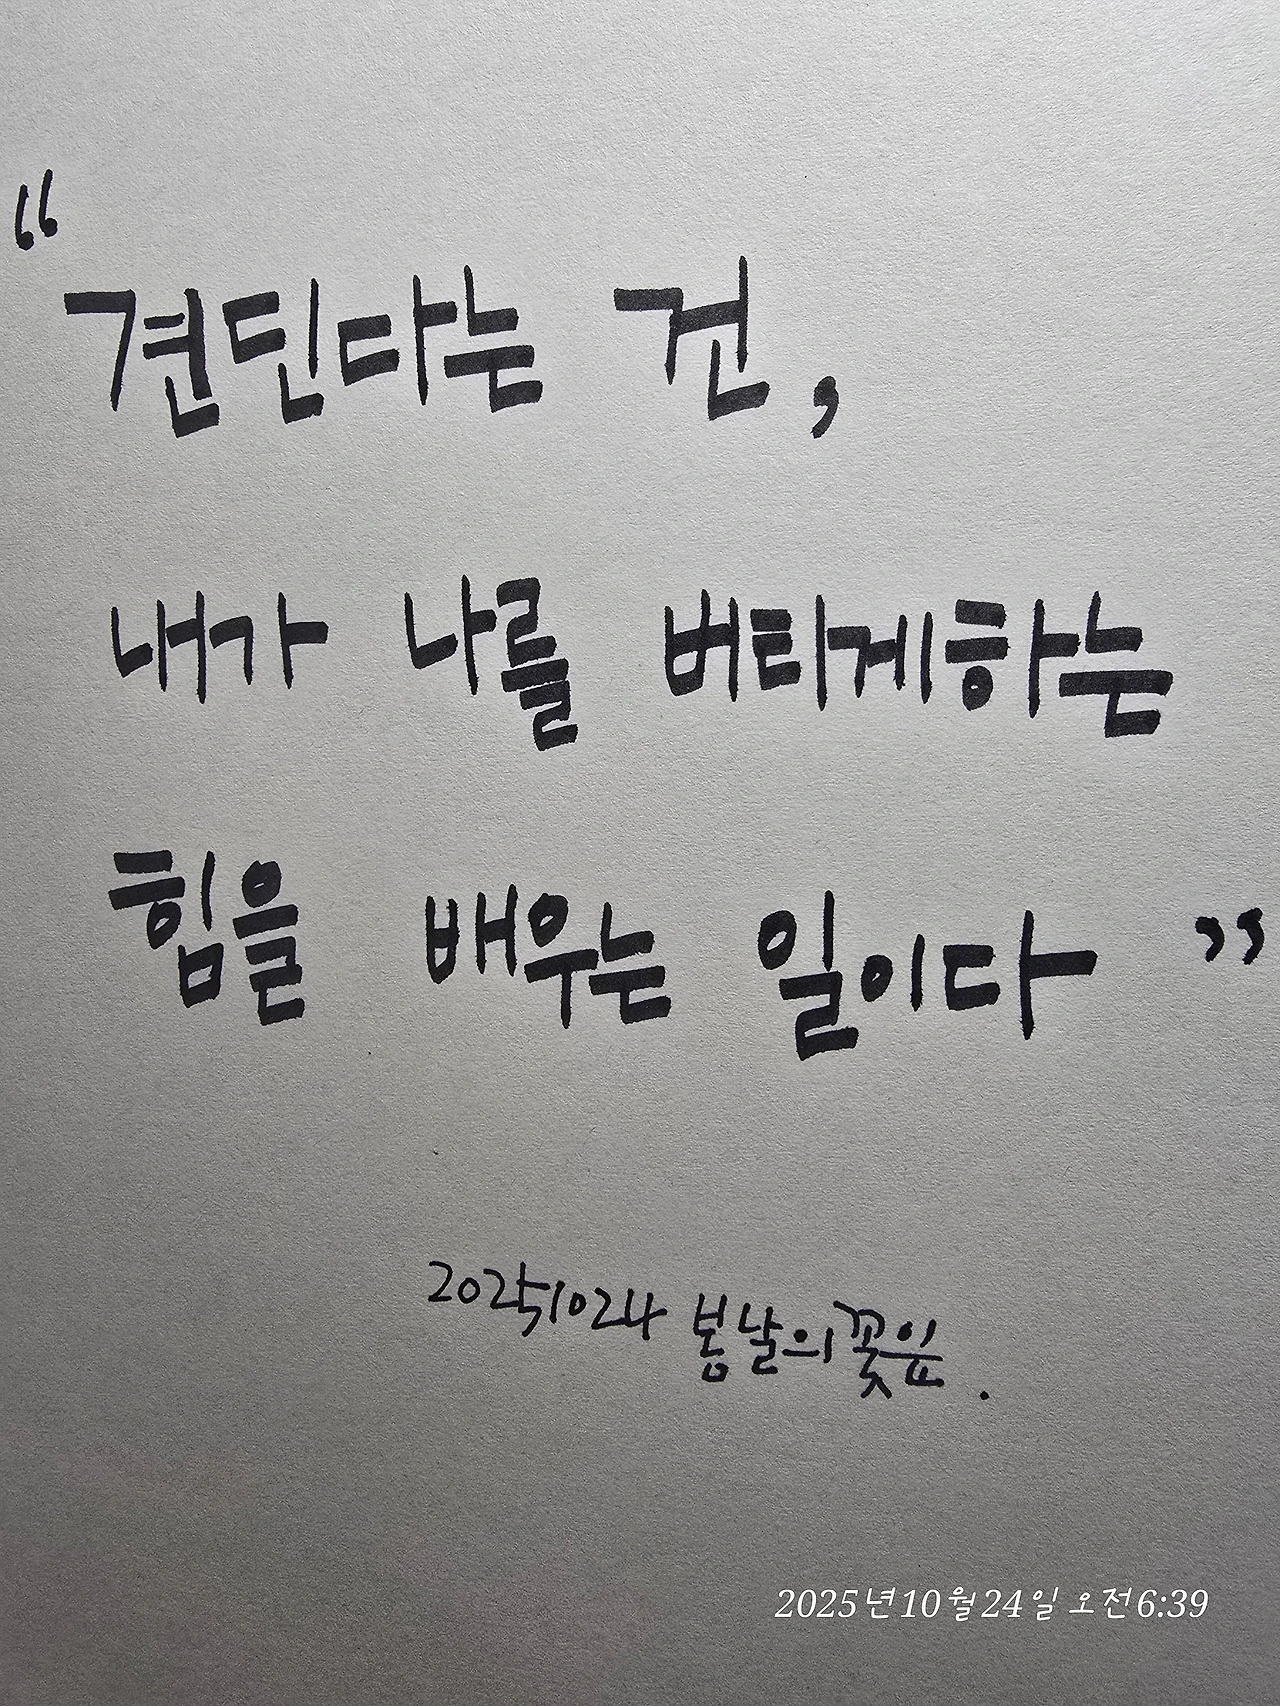 “
견딘다는 건,
내가 나를 버티게하는
힘을 배우는 일이다 ”
20251024 봄날의꽃잎.
2025년10월24일 오전6:39